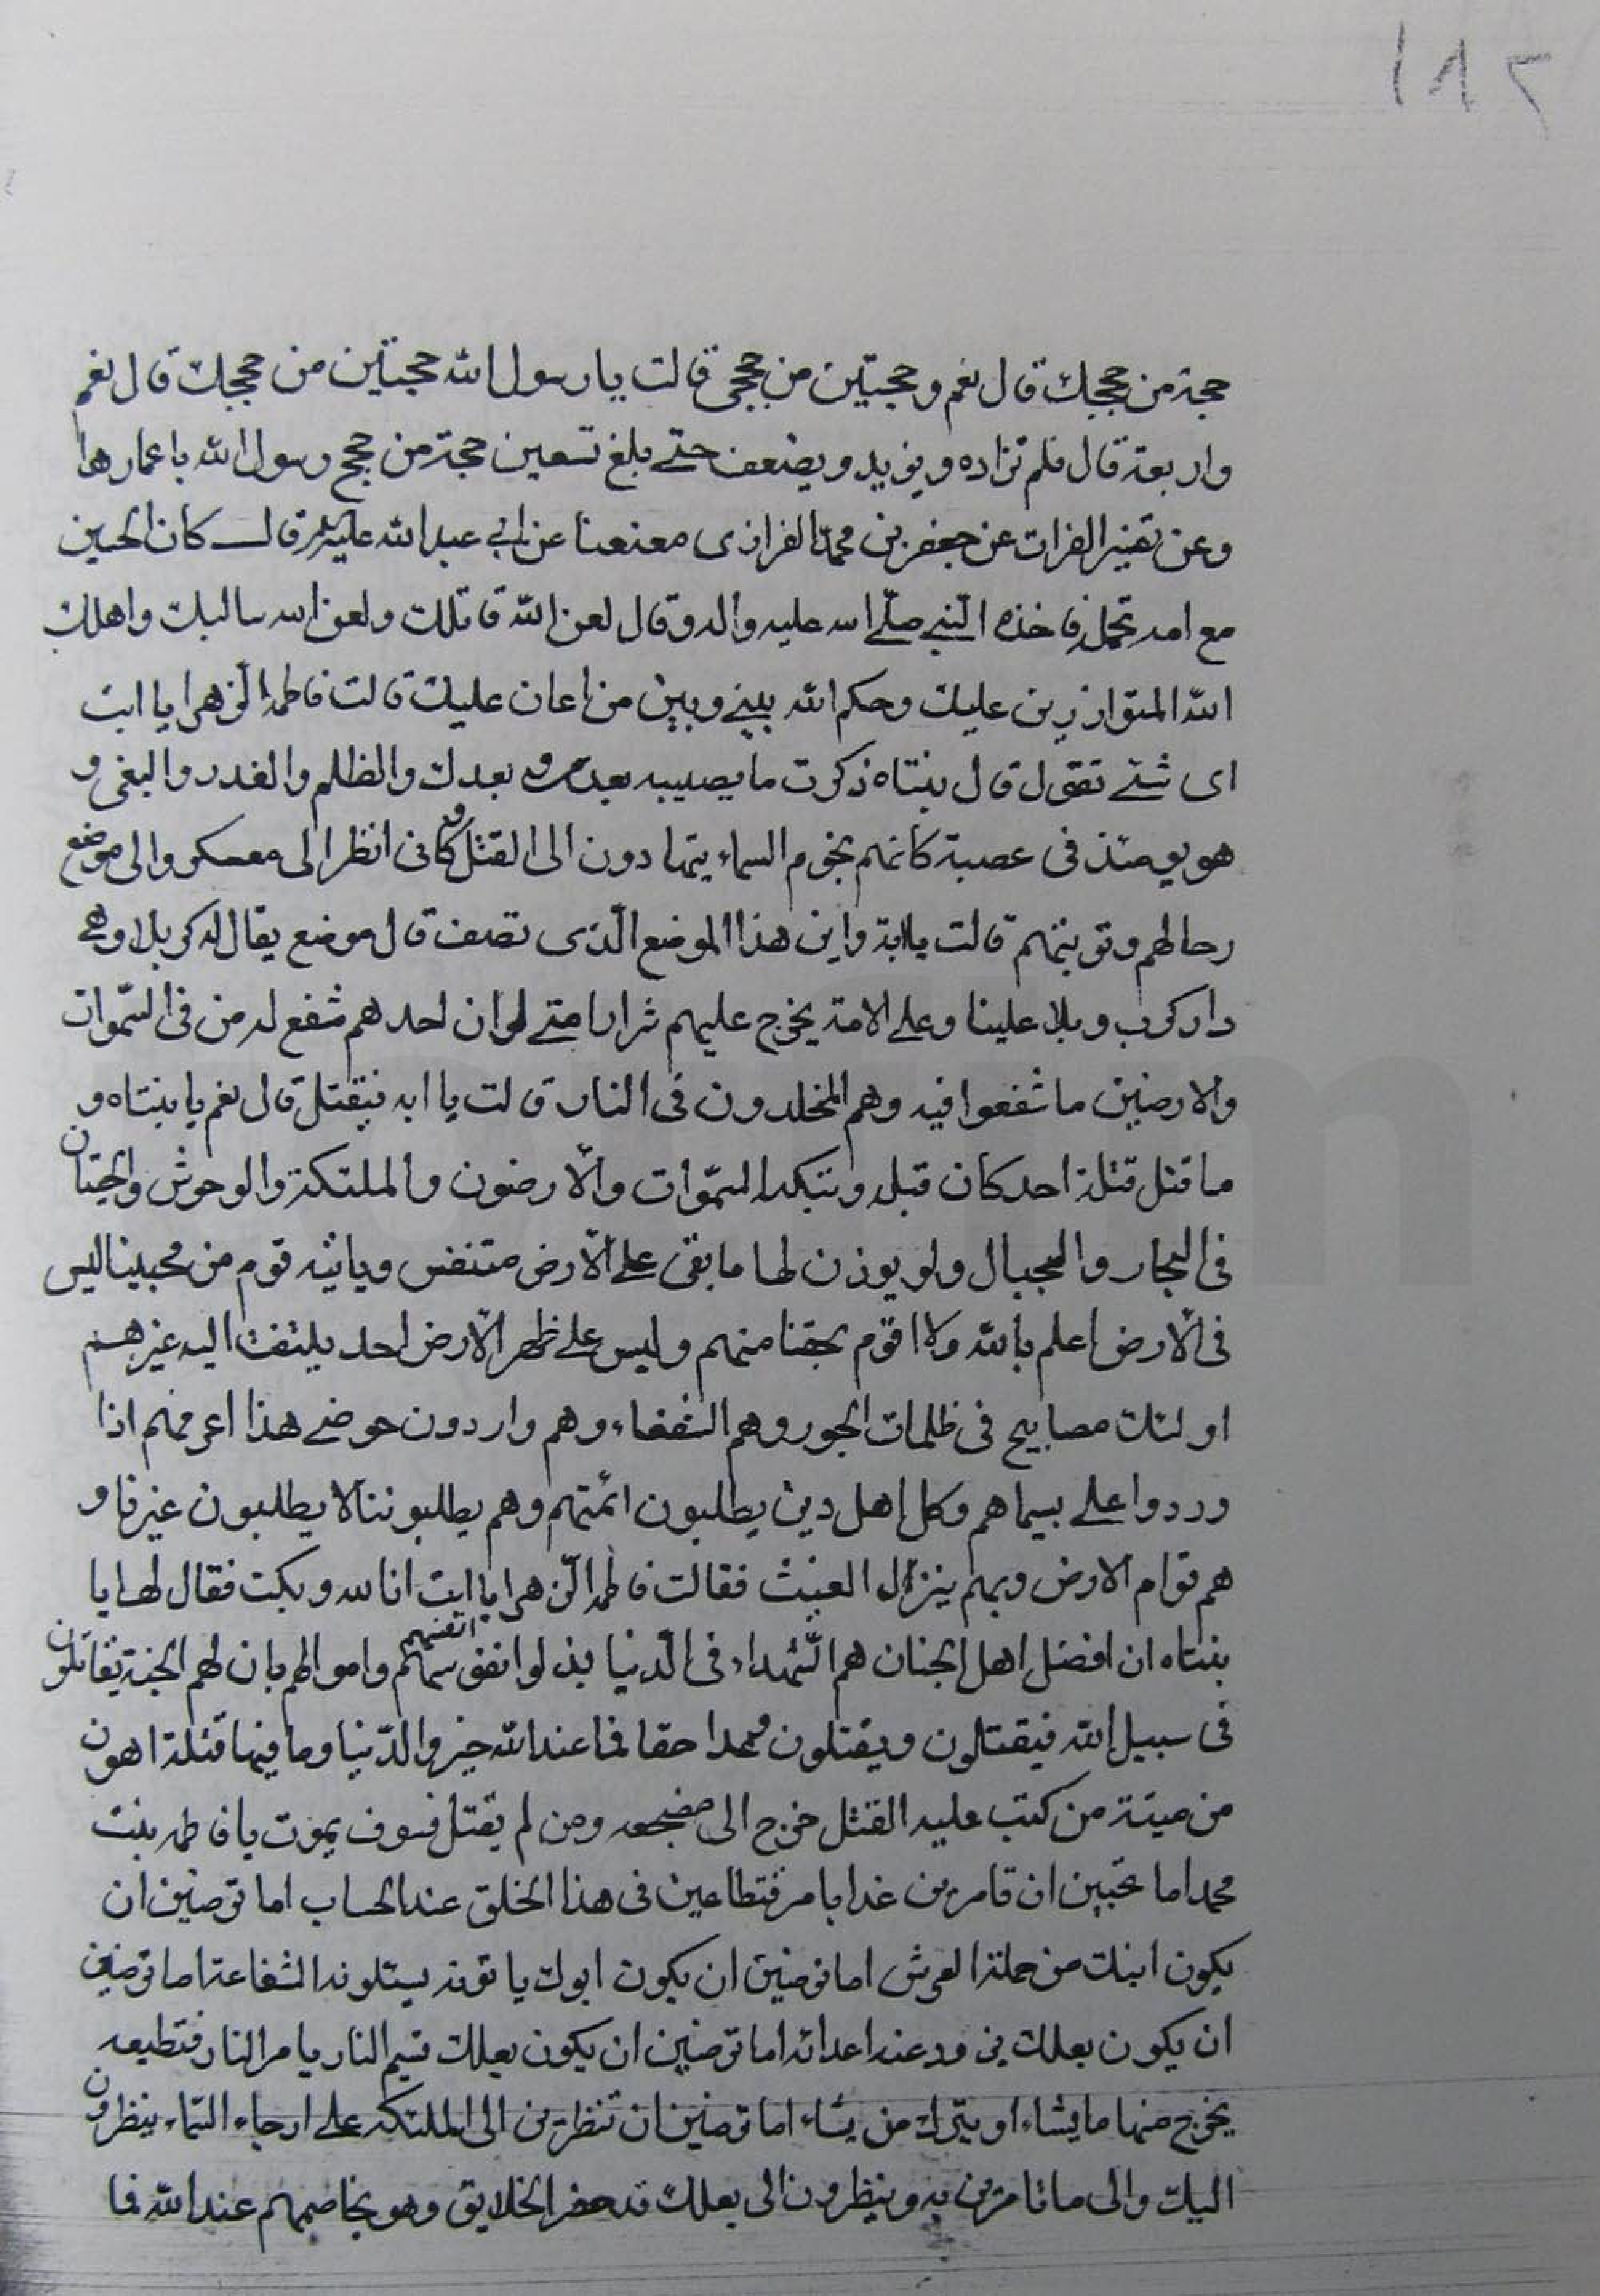 ١٨٢
حجة من حججك قال نعم وحجتين من حججى قالت يا رسول الله حجتين من حججك قال نعم
واربعة قال فلم تزاده ويزيد ويضعف حتى بلغ تسعين حجة من حجج رسول الله باعمارها
وعن تفسير الفرات عن جعفر بن محمد الفزازى معنعنا عن ابى عبد الله عليه قال كان الحسين
مع امه تحمله فاخذه النبى صلى الله عليه واله وقال لعن الله قاتلك ولعن الله سالبك واهلك
الله المتوازرين عليك وحكم الله بينى وبين من اعان عليك قالت فاطمة الزهرا يا ابت
اى شئ تقول قال بنتاه ذكرت ما يصيبه بعدى وبعدك والظلم والغدر والبغى و
هو يومئذ فى عصبة كانهم نجوم السماء يتهادون الى القتل وكانى انظر الى معسكر والى موضع
رحالهم وتربتهم قالت يا ابة واين هذا الموضع الذى تصف قال موضع يقال له كربلا وهى
دار كرب وبلا علينا وعلى الامة يخرج عليهم شرار امتى لو ان احدهم شفع له من فى السموات
والارضين ما شفعوا فيه وهم المخلدون فى النار قالت يا ابه فيقتل قال نعم يا بنتاه و
ما قتل قتلة احد كان قبله وتبكه السموات والارضون والملئكة والوحوش والحيتان
فى البحار والجبال ولو يوذن لها ما بقى على الارض متنفس وياتيه قوم من محبينا ليس
فى الارض اعلم بالله ولا اقوم بحقنا منهم وليس على ظهر الارض احد يلتفت اليه غيرهم
اولئك مصابيح فى ظلمات الجور وهم الشفعاء وهم واردون حوضى هذا اعرفهم اذا
وردوا على بسيماهم وكل اهل دين يطلبون ائمتهم وهم يطلبوننا لا يطلبون غيرنا و
هم قوام الارض وبهم ينزل الغيث فقالت فاطمة الزهرا يا ابت انا لله وبكت فقال لها يا
بنتاه ان افضل اهل الجنان هم الشهداء فى الدنيا بذلوا انفسهم واموالهم بان لهم الجنة يقاتلون
فى سبيل الله فيقتلون ويقتلون وعدا حقا فما عند الله خير والدنيا وما فيها قتلة اهون
من ميتة من كتب عليه القتل خرج الى مضجعه ومن لم يقتل فسوف يموت يا فاطمه بنت
محمد اما تحبين ان تامرين غدا بامر فتطاعين فى هذا الخلق عند الحساب اما ترضين ان
يكون ابنك من حملة العرش اما ترضين ان يكون ابوك ياتونه يسئلونه الشفاعة اما ترضين
ان يكون بعلك يذود عنه اعدائه اما ترضين ان يكون بعلك قسيم النار يامر النار فتطيعه
يخرج منها ما يشاء او يترك من يشاء اما ترضين ان تنظرين الى الملئكه على ارجاء السماء ينظرون
اليك والى ما تامرين به وينظرون الى بعلك قد حضر الخلايق وهو يخاصمهم عند الله فما